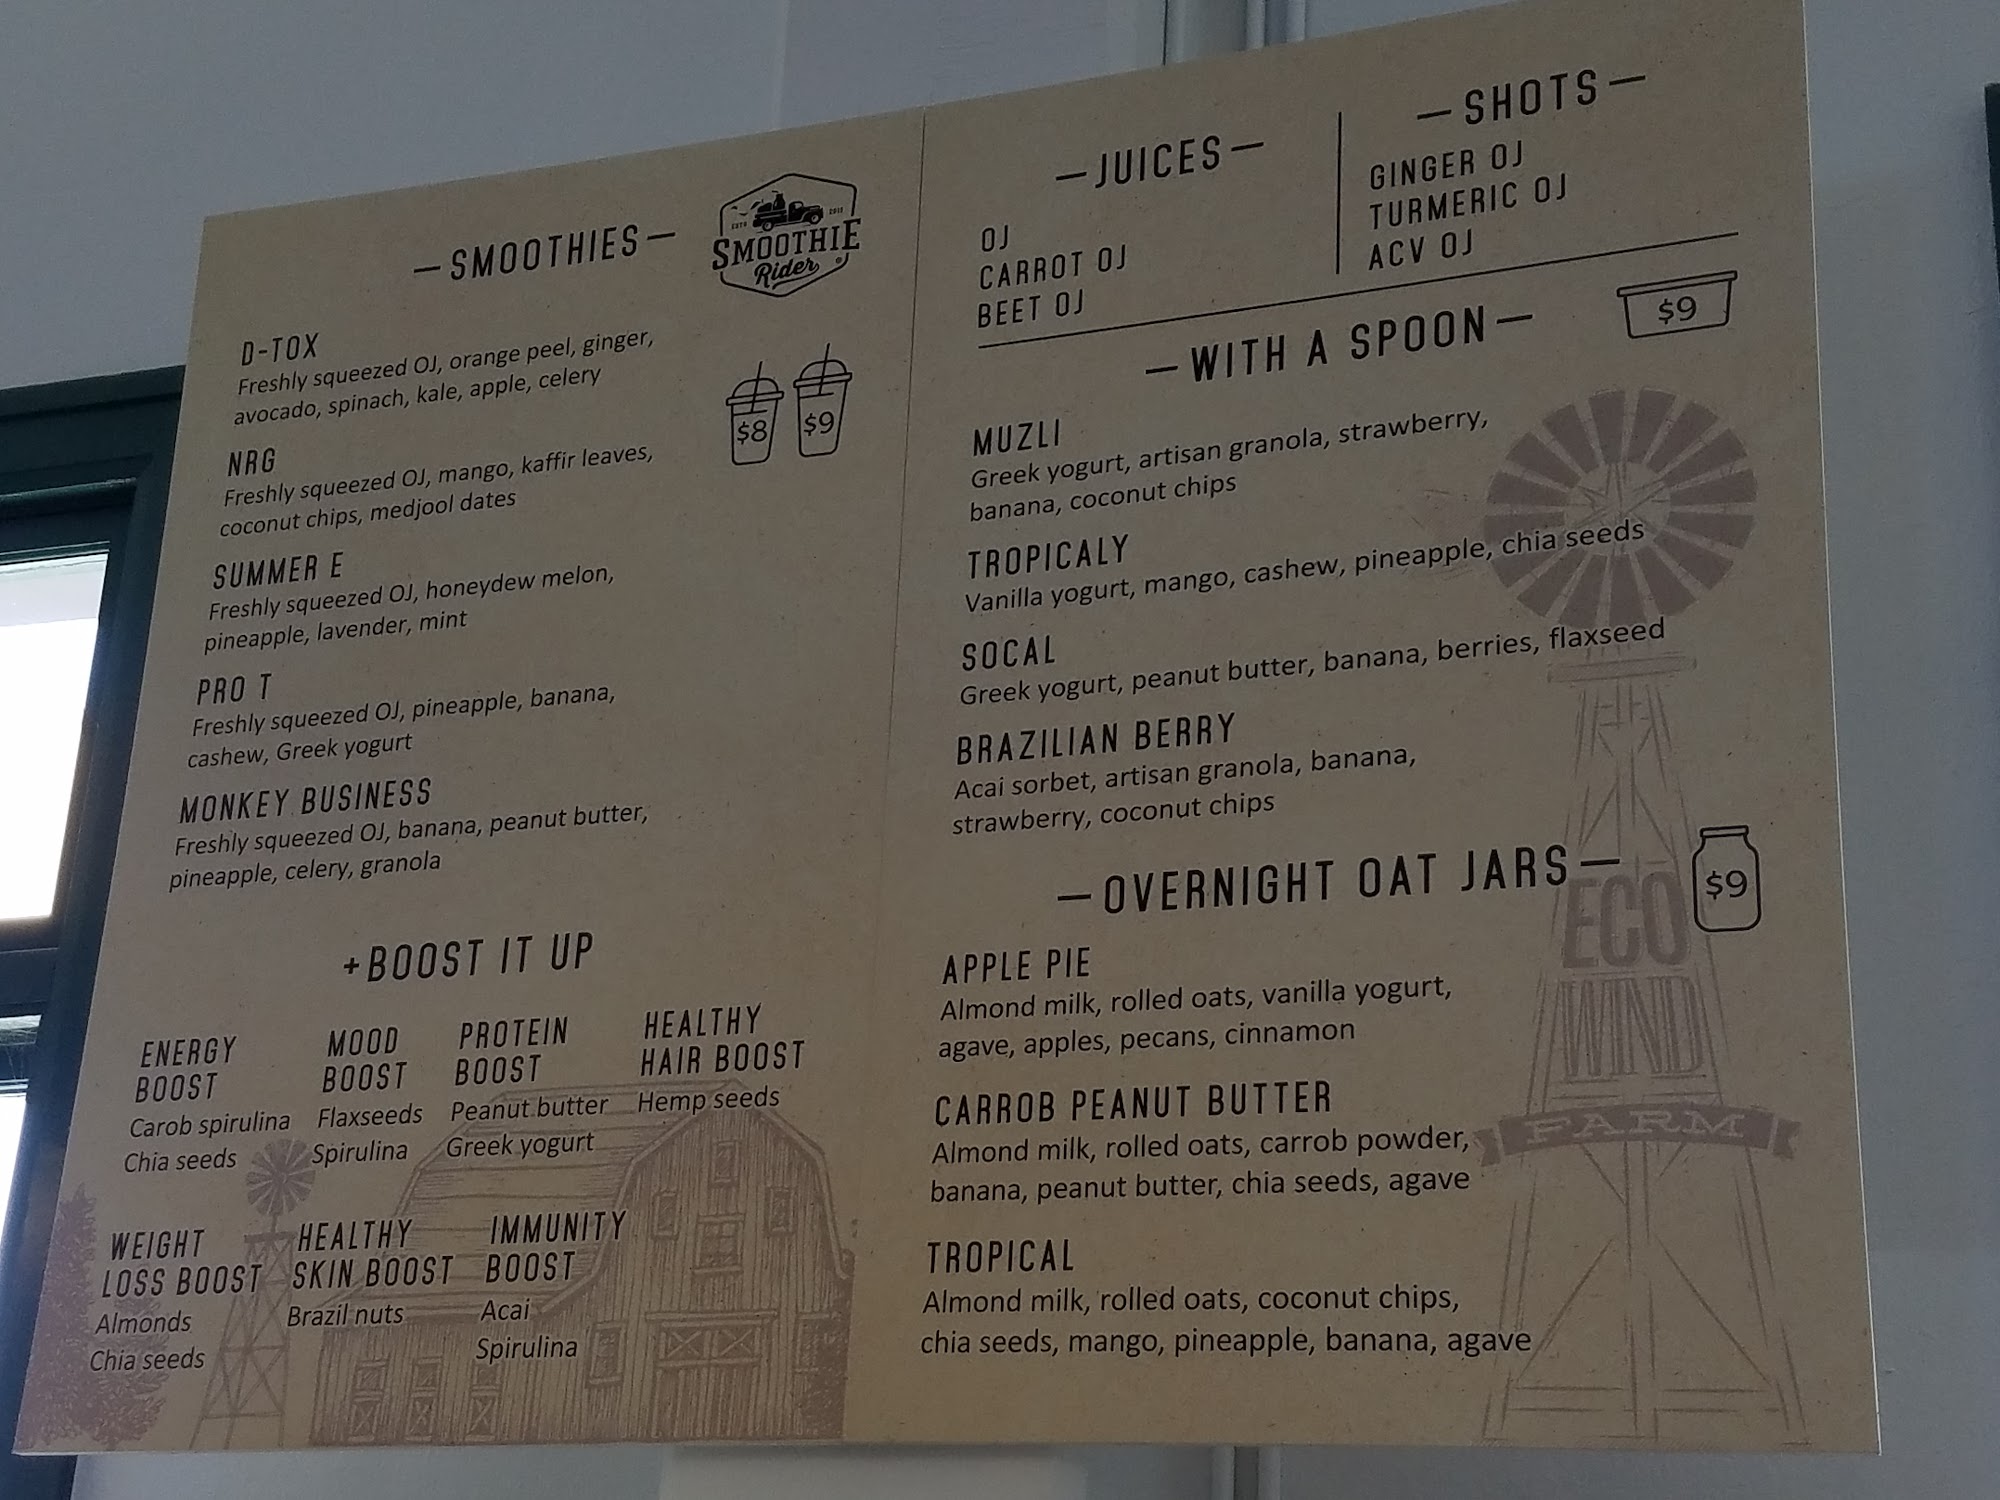 —SMOOTHIES—
ESTD 2017
SMOOTHIE
Rider
D-TOX
Freshly squeezed OJ, orange peel, ginger,
avocado, spinach, kale, apple, celery
NRG
Freshly squeezed OJ, mango, kaffir leaves,
coconut chips, medjool dates
SUMMER E
Freshly squeezed OJ, honeydew melon,
pineapple, lavender, mint
PRO T
Freshly squeezed OJ, pineapple, banana,
cashew, Greek yogurt
MONKEY BUSINESS
Freshly squeezed OJ, banana, peanut butter,
pineapple, celery, granola
$8 $9
+BOOST IT UP
ENERGY
BOOST
Carob spirulina
Chia seeds
MOOD
BOOST
Flaxseeds
Spirulina
PROTEIN
BOOST
Peanut butter
Greek yogurt
HEALTHY
HAIR BOOST
Hemp seeds
WEIGHT
LOSS BOOST
Almonds
Chia seeds
HEALTHY
SKIN BOOST
Brazil nuts
IMMUNITY
BOOST
Acai
Spirulina
—JUICES—
OJ
CARROT OJ
BEET OJ
—SHOTS—
GINGER OJ
TURMERIC OJ
ACV OJ
—WITH A SPOON—
$9
MUZLI
Greek yogurt, artisan granola, strawberry,
banana, coconut chips
TROPICALY
Vanilla yogurt, mango, cashew, pineapple, chia seeds
SOCAL
Greek yogurt, peanut butter, banana, berries, flaxseed
BRAZILIAN BERRY
Acai sorbet, artisan granola, banana,
strawberry, coconut chips
—OVERNIGHT OAT JARS—
$9
APPLE PIE
Almond milk, rolled oats, vanilla yogurt,
agave, apples, pecans, cinnamon
CARROB PEANUT BUTTER
Almond milk, rolled oats, carrob powder,
banana, peanut butter, chia seeds, agave
TROPICAL
Almond milk, rolled oats, coconut chips,
chia seeds, mango, pineapple, banana, agave
ECO
WIND
FARM